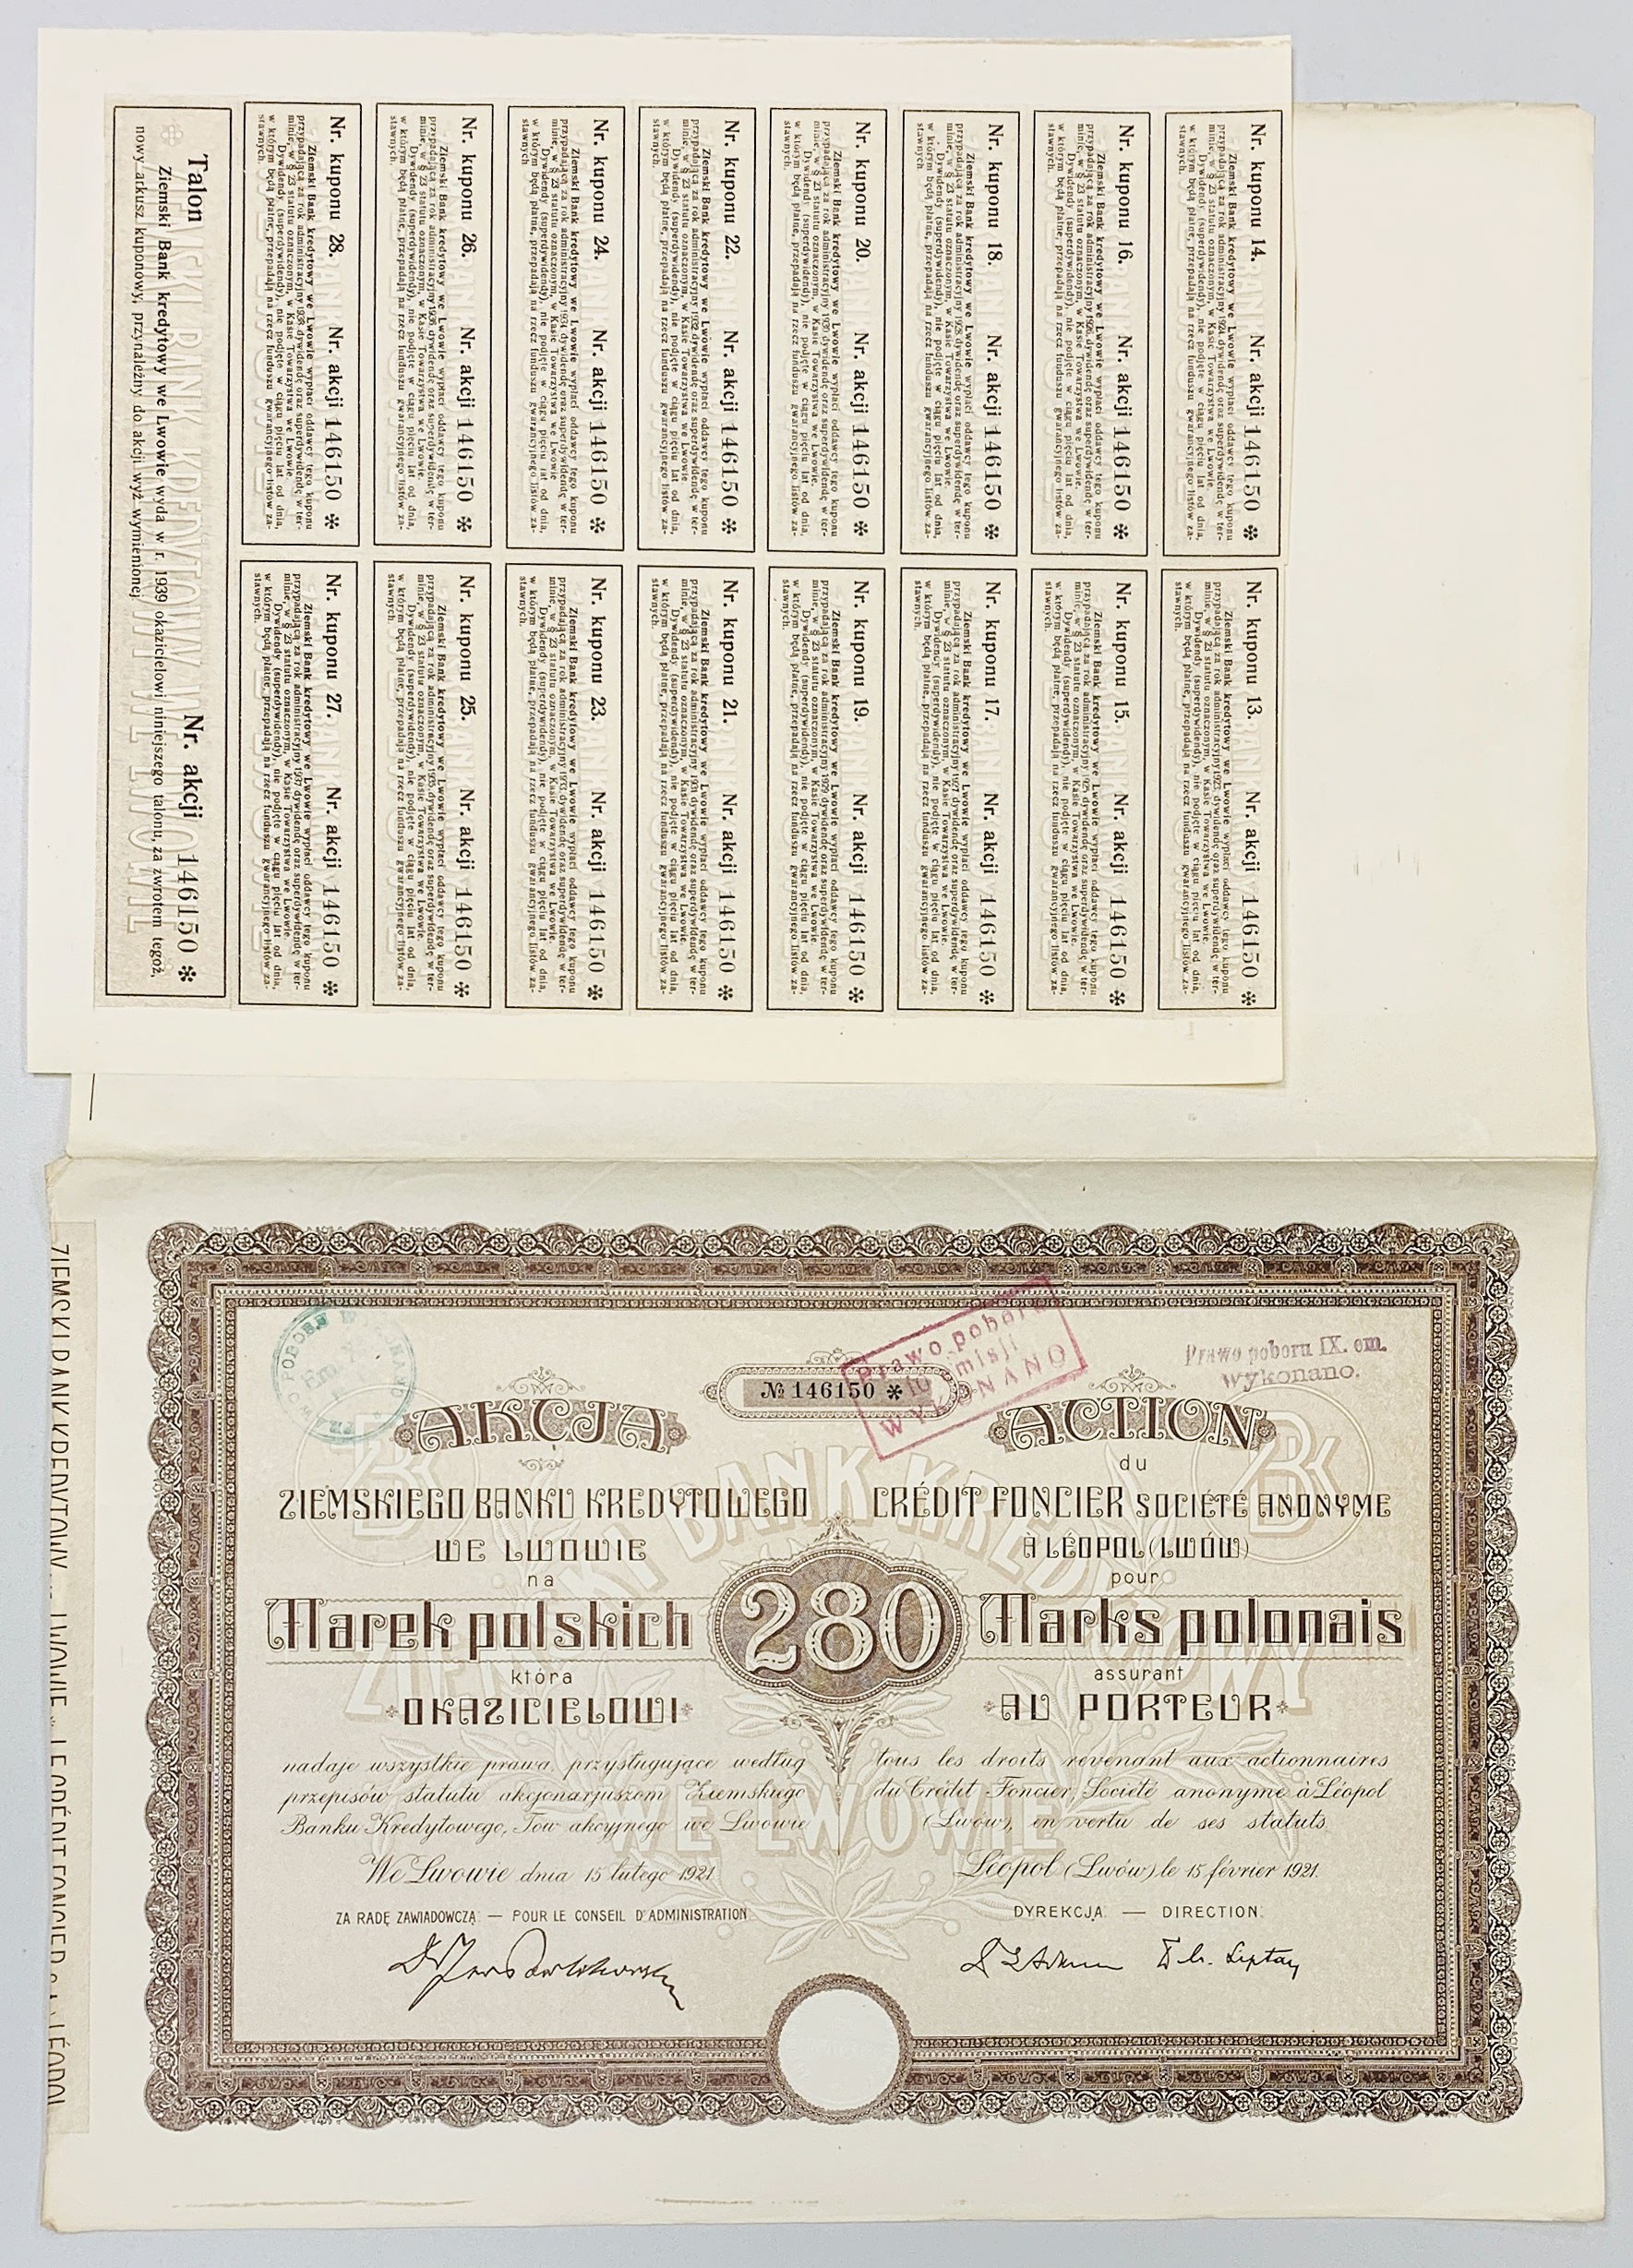 Nr. kuponu 14. Nr. akcji 146150 ✻
Ziemski Bank kredytowy we Lwowie wypłaci oddawcy tego kuponu
przypadającą za rok administracyjny 1924 dywidendę oraz superdywidendę w ter-
minie, w § 23 statutu oznaczonym, w Kasie Towarzystwa we Lwowie.
Dywidendy (superdywidendy), nie podjęte w ciągu pięciu lat od dnia,
w którym będą płatne, przepadają na rzecz funduszu gwarancyjnego listów za-
stawnych.
Nr. kuponu 13. Nr. akcji 146150 ✻
Ziemski Bank kredytowy we Lwowie wypłaci oddawcy tego kuponu
przypadającą za rok administracyjny 1923 dywidendę oraz superdywidendę w ter-
minie, w § 23 statutu oznaczonym, w Kasie Towarzystwa we Lwowie.
Dywidendy (superdywidendy), nie podjęte w ciągu pięciu lat od dnia,
w którym będą płatne, przepadają na rzecz funduszu gwarancyjnego listów za-
stawnych.
Nr. kuponu 16. Nr. akcji 146150 ✻
Ziemski Bank kredytowy we Lwowie wypłaci oddawcy tego kuponu
przypadającą za rok administracyjny 1926 dywidendę oraz superdywidendę w ter-
minie, w § 23 statutu oznaczonym, w Kasie Towarzystwa we Lwowie.
Dywidendy (superdywidendy), nie podjęte w ciągu pięciu lat od dnia,
w którym będą płatne, przepadają na rzecz funduszu gwarancyjnego listów za-
stawnych.
Nr. kuponu 15. Nr. akcji 146150 ✻
Ziemski Bank kredytowy we Lwowie wypłaci oddawcy tego kuponu
przypadającą za rok administracyjny 1925 dywidendę oraz superdywidendę w ter-
minie, w § 23 statutu oznaczonym, w Kasie Towarzystwa we Lwowie.
Dywidendy (superdywidendy), nie podjęte w ciągu pięciu lat od dnia,
w którym będą płatne, przepadają na rzecz funduszu gwarancyjnego listów za-
stawnych.
Nr. kuponu 18. Nr. akcji 146150 ✻
Ziemski Bank kredytowy we Lwowie wypłaci oddawcy tego kuponu
przypadającą za rok administracyjny 1928 dywidendę oraz superdywidendę w ter-
minie, w § 23 statutu oznaczonym, w Kasie Towarzystwa we Lwowie.
Dywidendy (superdywidendy), nie podjęte w ciągu pięciu lat od dnia,
w którym będą płatne, przepadają na rzecz funduszu gwarancyjnego listów za-
stawnych.
Nr. kuponu 17. Nr. akcji 146150 ✻
Ziemski Bank kredytowy we Lwowie wypłaci oddawcy tego kuponu
przypadającą za rok administracyjny 1927 dywidendę oraz superdywidendę w ter-
minie, w § 23 statutu oznaczonym, w Kasie Towarzystwa we Lwowie.
Dywidendy (superdywidendy), nie podjęte w ciągu pięciu lat od dnia,
w którym będą płatne, przepadają na rzecz funduszu gwarancyjnego listów za-
stawnych.
Nr. kuponu 20. Nr. akcji 146150 ✻
Ziemski Bank kredytowy we Lwowie wypłaci oddawcy tego kuponu
przypadającą za rok administracyjny 1930 dywidendę oraz superdywidendę w ter-
minie, w § 23 statutu oznaczonym, w Kasie Towarzystwa we Lwowie.
Dywidendy (superdywidendy), nie podjęte w ciągu pięciu lat od dnia,
w którym będą płatne, przepadają na rzecz funduszu gwarancyjnego listów za-
stawnych.
Nr. kuponu 19. Nr. akcji 146150 ✻
Ziemski Bank kredytowy we Lwowie wypłaci oddawcy tego kuponu
przypadającą za rok administracyjny 1929 dywidendę oraz superdywidendę w ter-
minie, w § 23 statutu oznaczonym, w Kasie Towarzystwa we Lwowie.
Dywidendy (superdywidendy), nie podjęte w ciągu pięciu lat od dnia,
w którym będą płatne, przepadają na rzecz funduszu gwarancyjnego listów za-
stawnych.
Nr. kuponu 22. Nr. akcji 146150 ✻
Ziemski Bank kredytowy we Lwowie wypłaci oddawcy tego kuponu
przypadającą za rok administracyjny 1932 dywidendę oraz superdywidendę w ter-
minie, w § 23 statutu oznaczonym, w Kasie Towarzystwa we Lwowie.
Dywidendy (superdywidendy), nie podjęte w ciągu pięciu lat od dnia,
w którym będą płatne, przepadają na rzecz funduszu gwarancyjnego listów za-
stawnych.
Nr. kuponu 21. Nr. akcji 146150 ✻
Ziemski Bank kredytowy we Lwowie wypłaci oddawcy tego kuponu
przypadającą za rok administracyjny 1931 dywidendę oraz superdywidendę w ter-
minie, w § 23 statutu oznaczonym, w Kasie Towarzystwa we Lwowie.
Dywidendy (superdywidendy), nie podjęte w ciągu pięciu lat od dnia,
w którym będą płatne, przepadają na rzecz funduszu gwarancyjnego listów za-
stawnych.
Nr. kuponu 24. Nr. akcji 146150 ✻
Ziemski Bank kredytowy we Lwowie wypłaci oddawcy tego kuponu
przypadającą za rok administracyjny 1934 dywidendę oraz superdywidendę w ter-
minie, w § 23 statutu oznaczonym, w Kasie Towarzystwa we Lwowie
Dywidendy (superdywidendy), nie podjęte w ciągu pięciu lat od dnia,
w którym będą płatne, przepadają na rzecz funduszu gwarancyjnego listów za-
stawnych.
Nr. kuponu 23. Nr. akcji 146150 ✻
Ziemski Bank kredytowy we Lwowie wypłaci oddawcy tego kuponu
przypadającą za rok administracyjny 1933 dywidendę oraz superdywidendę w ter-
minie, w § 23 statutu oznaczonym, w Kasie Towarzystwa we Lwowie.
Dywidendy (superdywidendy), nie podjęte w ciągu pięciu lat od dnia,
w którym będą płatne, przepadają na rzecz funduszu gwarancyjnego listów za-
stawnych.
Nr. kuponu 26. Nr. akcji 146150 ✻
Ziemski Bank kredytowy we Lwowie wypłaci oddawcy tego kuponu
przypadającą za rok administracyjny 1936 dywidendę oraz superdywidendę w ter-
minie, w § 23 statutu oznaczonym, w Kasie Towarzystwa we Lwowie.
Dywidendy (superdywidendy), nie podjęte w ciągu pięciu lat od dnia,
w którym będą płatne, przepadają na rzecz funduszu gwarancyjnego listów za-
stawnych.
Nr. kuponu 25. Nr. akcji 146150 ✻
Ziemski Bank kredytowy we Lwowie wypłaci oddawcy tego kuponu
przypadającą za rok administracyjny 1935 dywidendę oraz superdywidendę w ter-
minie, w § 23 statutu oznaczonym, w Kasie Towarzystwa we Lwowie.
Dywidendy (superdywidendy), nie podjęte w ciągu pięciu lat od dnia,
w którym będą płatne, przepadają na rzecz funduszu gwarancyjnego listów za-
stawnych.
Nr. kuponu 28. Nr. akcji 146150 ✻
Ziemski Bank kredytowy we Lwowie wypłaci oddawcy tego kuponu
przypadającą za rok administracyjny 1938 dywidendę oraz superdywidendę w ter-
minie, w § 23 statutu oznaczonym, w Kasie Towarzystwa we Lwowie
Dywidendy (superdywidendy), nie podjęte w ciągu pięciu lat od dnia,
w którym będą płatne, przepadają na rzecz funduszu gwarancyjnego listów za-
stawnych.
Nr. kuponu 27. Nr. akcji 146150 ✻
Ziemski Bank kredytowy we Lwowie wypłaci oddawcy tego kuponu
przypadającą za rok administracyjny 1937 dywidendę oraz superdywidendę w ter-
minie, w § 23 statutu oznaczonym, w Kasie Towarzystwa we Lwowie
Dywidendy (superdywidendy), nie podjęte w ciągu pięciu lat od dnia,
w którym będą płatne, przepadają na rzecz funduszu gwarancyjnego listów za-
stawnych.
Talon Nr. akcji 146150 ✻
Ziemski Bank kredytowy we Lwowie wyda w r. 1939 okazicielowi niniejszego talonu, za zwrotem tegoż,
nowy arkusz kuponowy, przynależny do akcji wyż wymienionej.
ZIEMSKI BANK KREDYTOWY WE LWOWIE * LE CRÉDIT FONCIER S.A. À LÉOPOL
Prawo poboru
10 emisji
WYKONANO
Prawo poboru IX. em.
wykonano.
№ 146150 ✻
AKCJA
ZIEMSKIEGO BANKU KREDYTOWEGO
WE LWOWIE
na
Marek polskich
która
OKAZICIELOWI
nadaje wszystkie prawa, przysługujące według
przepisów statutu akcjonarjuszom Ziemskiego
Banku Kredytowego, Tow akcyjnego we Lwowie
We Lwowie dnia 15 lutego 1921
280
ACTION
du
CRÉDIT FONCIER SOCIÉTÉ ANONYME
À LÉOPOL (LWÓW)
pour
Marks polonais
assurant
AU PORTEUR
tous les droits revenant aux actionnaires
du Crédit Foncier, Société anonyme à Léopol
(Lwów), en vertu de ses statuts
Léopol (Lwów) le 15 février 1921.
ZA RADĘ ZAWIADOWCZĄ: — POUR LE CONSEIL D'ADMINISTRATION
DYREKCJA: — DIRECTION:
ZIEMSKI BANK KREDYTOWY
WE LWOWIE